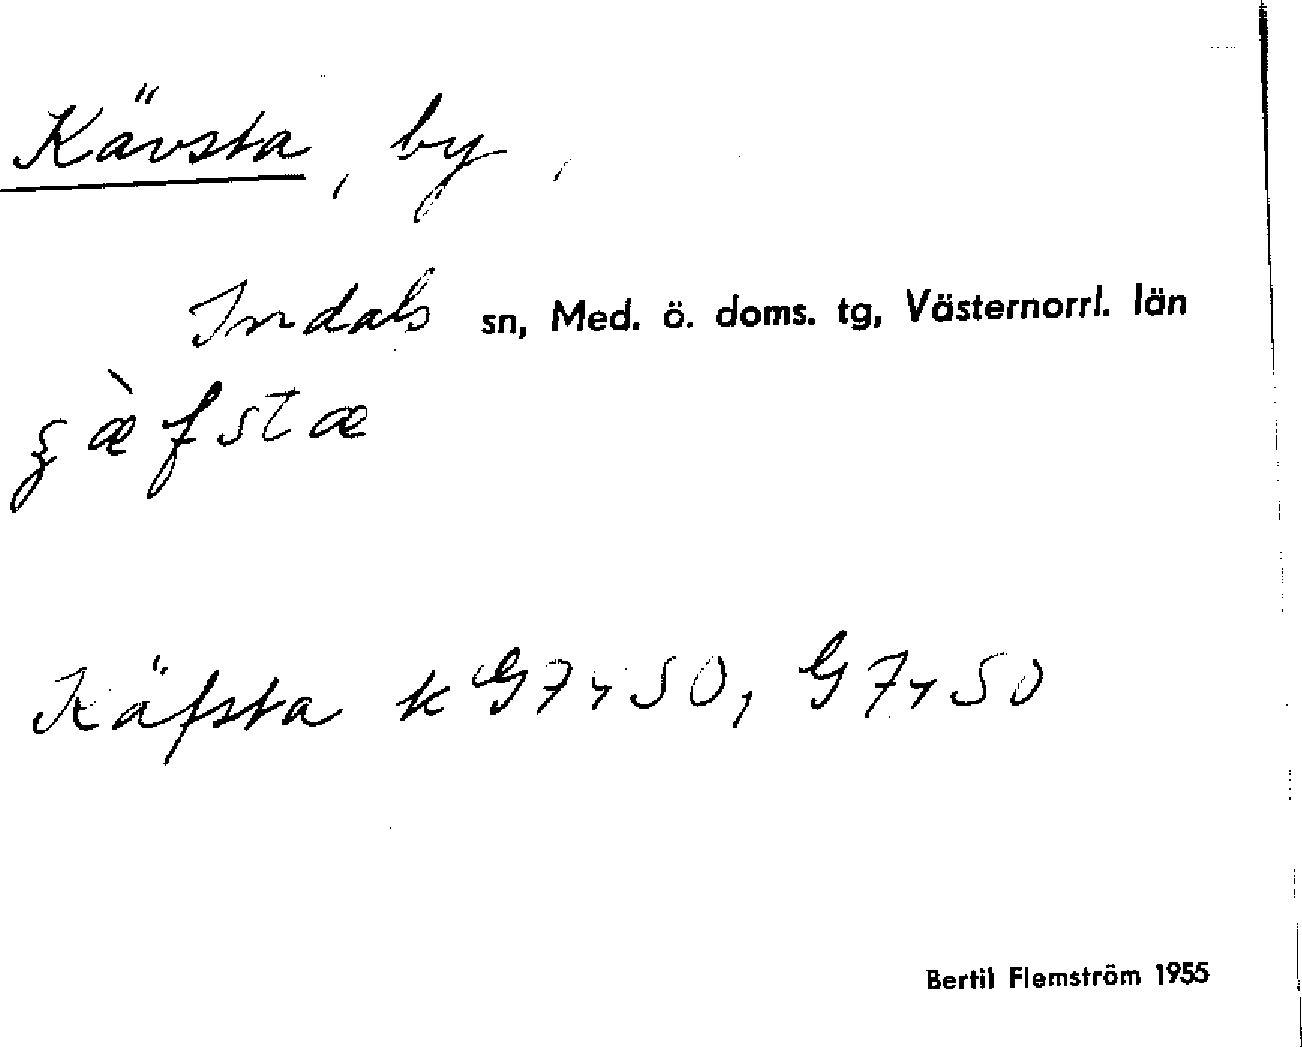 Kävsta, by,
Indals sn, Med. ö. doms. tg, Västernorrl. län
ʂæ̀fstæ
Käfsta k G7y SO, G7y SO
Bertil Flemström 1955